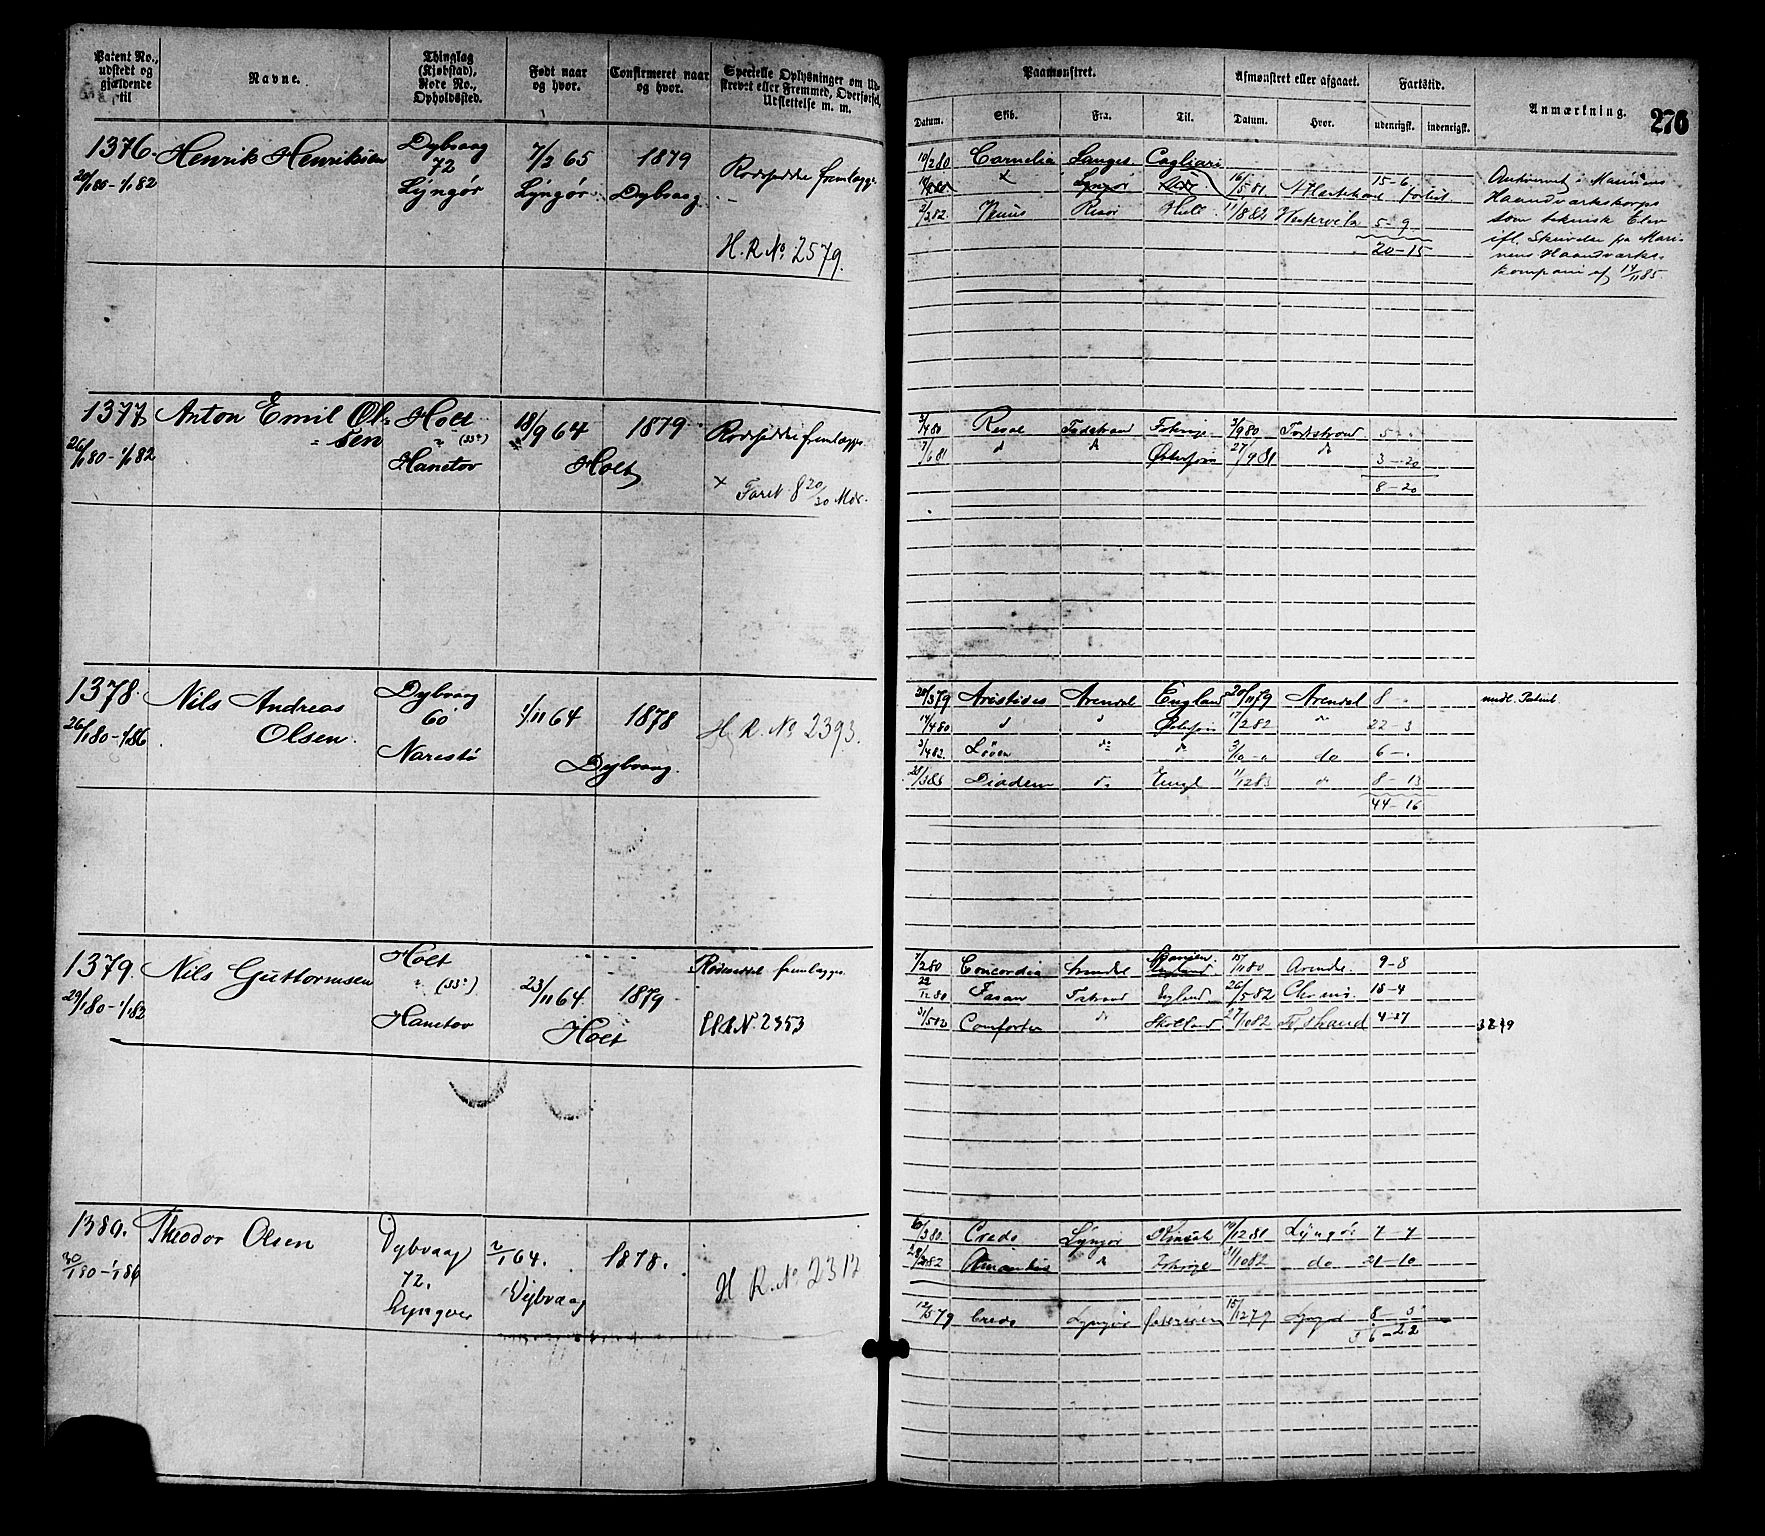 Patent No.,
udstedt og
gjældende
til
Navne.
Thinglag
(Kjøbstad),
Rode No.,
Opholdssted.
Født naar
og hvor.
Confirmeret naar
og hvor.
Specielle Oplysninger om Ud-
skrevet eller Fremmed, Overførsel,
Udslettelse m. m.
Paamønstret.
Afmønstret eller afgaaet.
Fartstid.
Anmærkning.
276
Datum.
Skib.
Fra.
Til.
Datum.
Hvor.
udenrigsk.
indenrigsk.
1376. Henrik Henriksen
20/1 80 - 1/1 82
Dybvaag
72
Lyngør
7/2 65
Lyngør
1879
Dybvaag
Rodeseddel fremlagt
H. R. No. 2579.
10/2 80 Cornelia Langes Cagliari
Lyngør 16/5 81 15-6
2/2 82 Venus Risør Hull 11/8 82 5-9
20-15
Antvervet i Marinens
Haandværkskorps
som teknisk Elev
ifl. Skrivelse fra Mari-
nens Haandværks-
kompani af 14/11 85.
1377 Anton Emil Ol-
sen
26/1 80 - 1/1 82
Holt
" (33a)
Hanetov
18/9 64
1879
Holt
Rodeseddel fremlagt
× Faret 8 20/30 Mdr.
3/4 80 Tvedestrand 3/9 80 Tvedestrand 5 "
7/6 81 d d Østersjøen 27/9 81 do 3-20
8-20
1378. Nils Andreas
Olsen.
26/1 80 - 1/1 86
Dybvaag
60
Narestø
1/11 64
1878
Dybvaag.
H. R. No 2393.
20/3 79 Aristides Arendal England 20/11 79 Arendal 8 -
17/4 80 d d Østersjøen 17/2 82 " 22-3
3/4 82. do d 3/10 - " do 6 - "
Diadem do Engl 1/12 83 d 8-13
44-16
midl. Patent.
1379. Nils Guttormsen
29/1 80 - 1/1 83
Holt
" (33a)
Hanetov
23/11 64.
1879
Holt
Rodeseddel fremlagt
H R N. 2353
7/2 80 Concordia Arendal 15/11 80 Arendal 9-8
22/12 80 Fasan England 26/5 82 18-4
31/5 82 Comforter do Skotland 27/10 82 4-27
1380. Theodor Olsen
30/1 80 - 1/1 86
Dybvaag
72.
Lyngøer
2/1 64.
Dybvaag
1878.
H R. No 2317
Credo Lyngør 19/12 81 Lyngør 7-7
d 11/10 82 do 21-10
12/5 79 Credo Lyngør 15/12 79 Lyngør 8-5